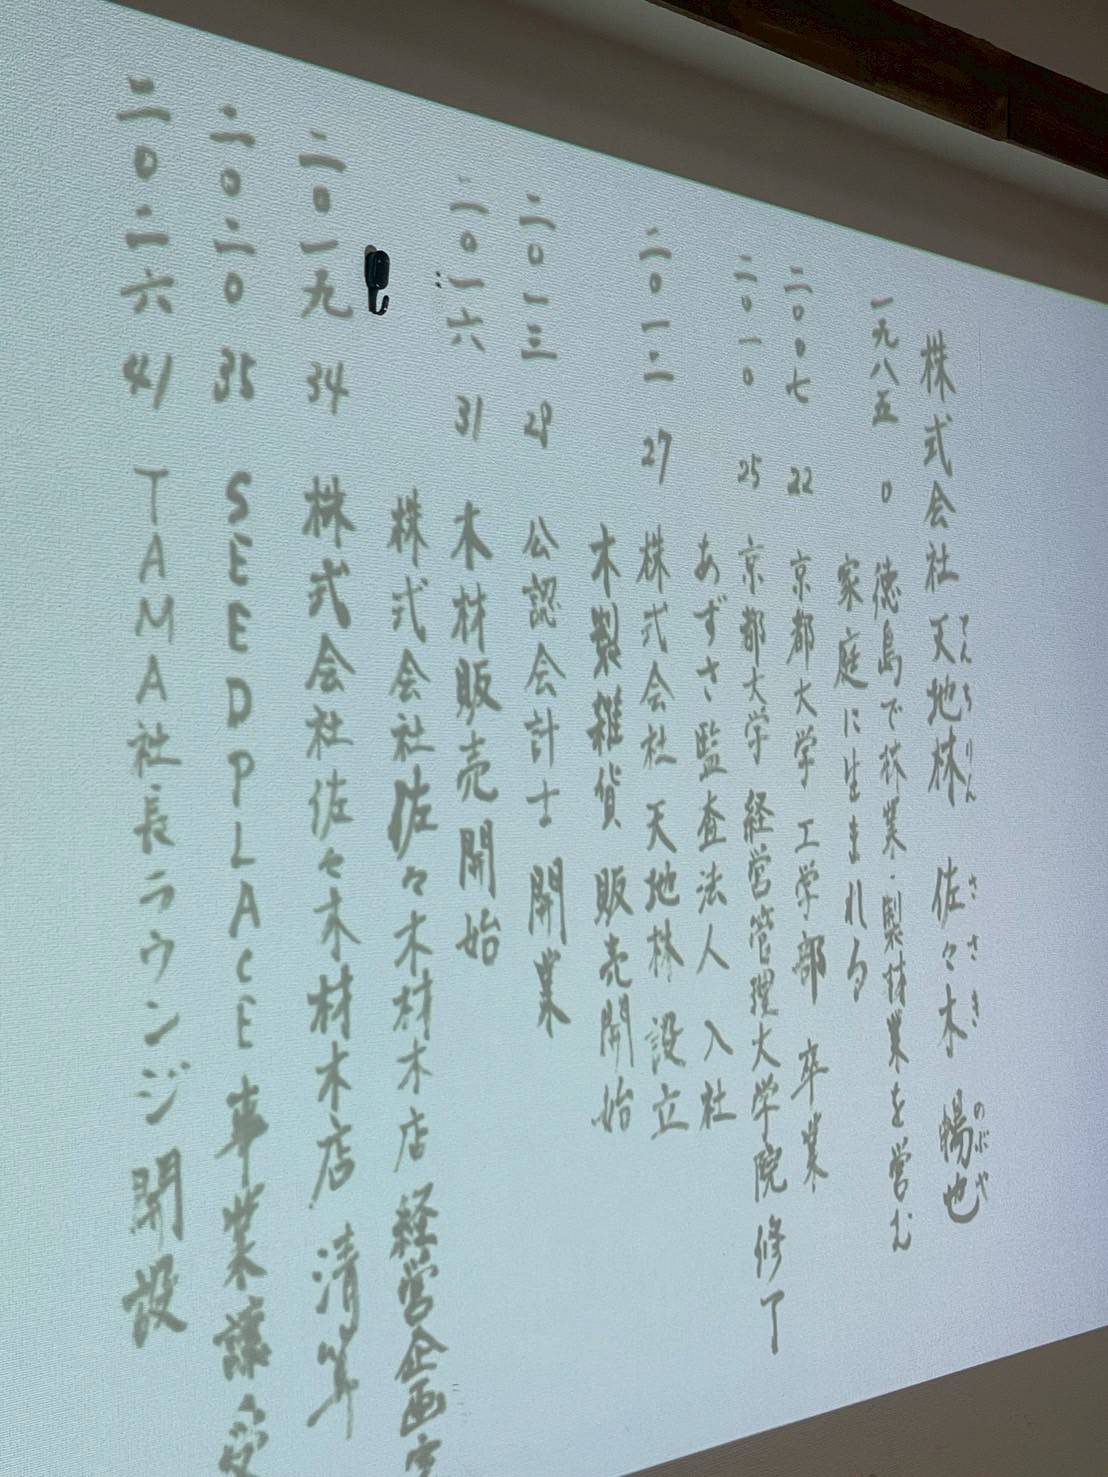 株式会社 天地林 佐々木 暢也
てんちりん ささき のぶや
一九八五 0 徳島で林業・製材業を営む
家庭に生まれる
二〇〇七 22 京都大学 工学部 卒業
二〇一〇 25 京都大学 経営管理大学院 修了
あずさ監査法人 入社
二〇一二 27 株式会社 天地林 設立
木製雑貨 販売開始
二〇一三 28 公認会計士 開業
二〇一六 31 木材販売開始
株式会社佐々木材木店 経営企画室
二〇一九 34 株式会社佐々木材木店 清算
二〇二〇 35 SEEDPLACE 事業譲受
二〇二六 41 TAMA社長ラウンジ 開設